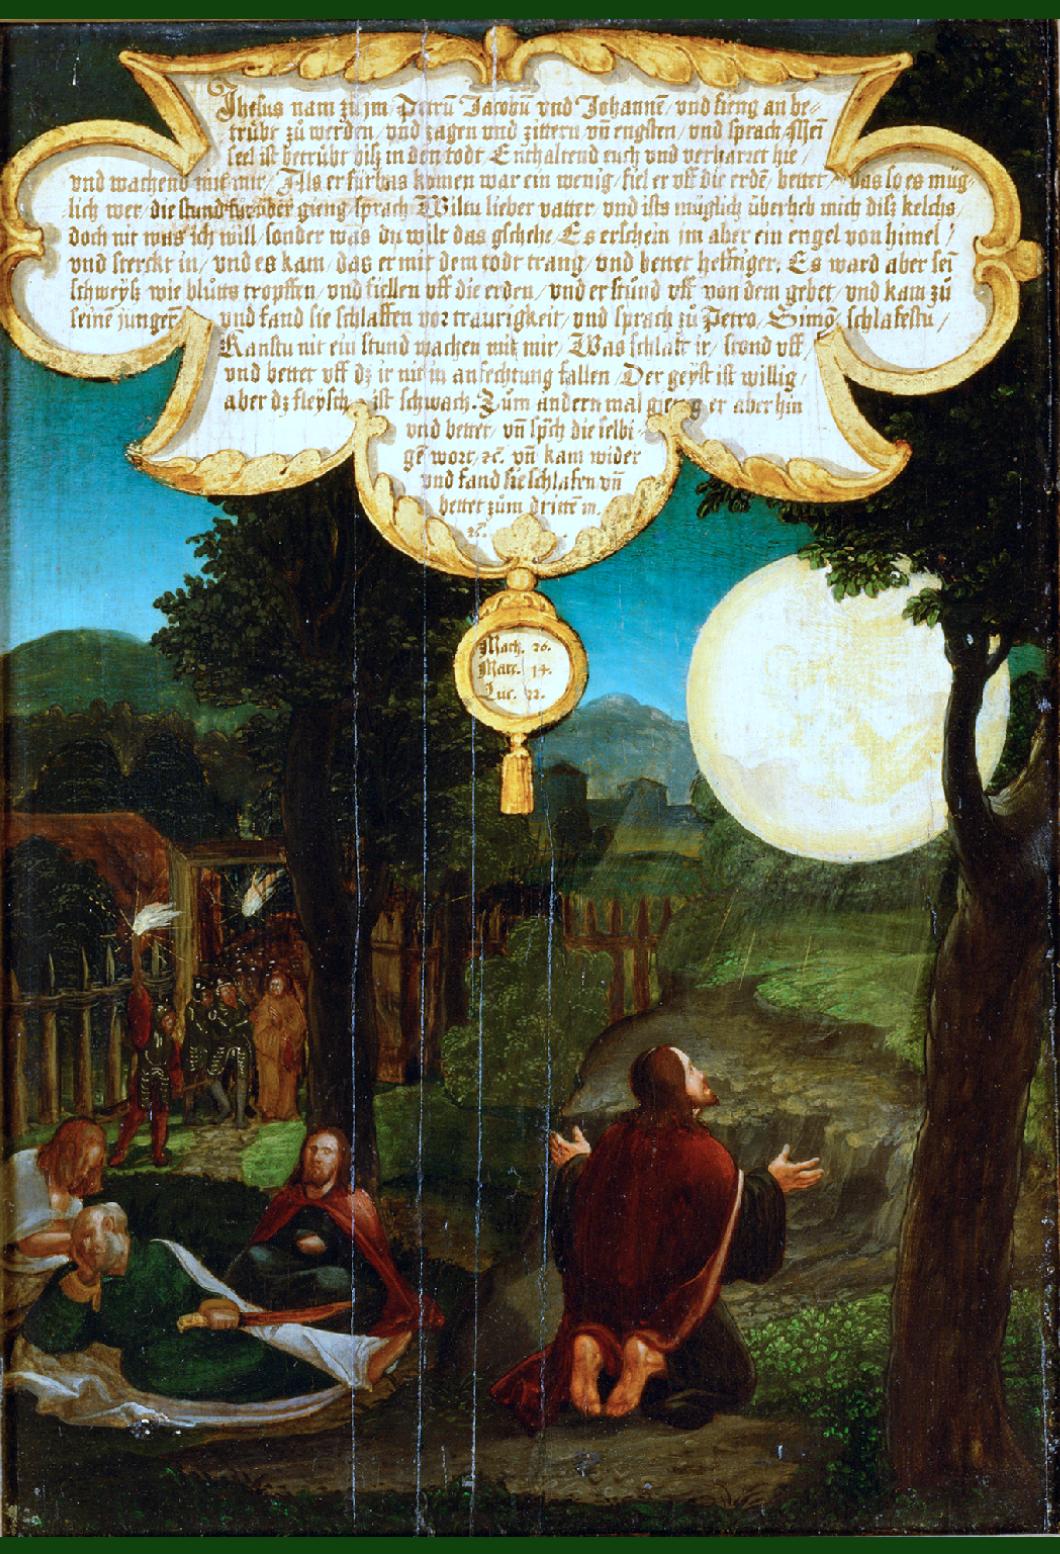 Jhesus nam zů jm Petrū Jacobū vnd Johannē / vnd fieng an be-
trübt zů werden / vnd zagen vnd zittern vn̄ engsten / vnd sprach Mein
seel ist betrübt bisz in den todt Enthaltend euch vnd verharret hie /
vnd wachend mit mir / Als er fürbas komen war ein wenig / fiel er vff die erdē / bettet / das so es müg-
lich wer / die stund fürüber gieng sprach Wiltu lieber vatter / vnd ists müglich überheb mich disz kelchs /
doch nit was ich will / sonder was du wilt das gschehe / Es erschein jm aber ein engel von himel /
vnd sterckt in / vnd es kam / das er mit dem todt trang / vnd bettet hefftiger. Es ward aber sei
schweysz wie blůtts tropffen / vnd fiellen vff die erden / vnd er stůnd vff von dem gebet / vnd kam zů
seinē jungern vnd fand sie schlaffen vor traurigkeit / vnd sprach zů Petro / Simō schlafestu /
Kanstu nit ein stund wachen mit mir / Was schlafft ir / stond vff /
vnd bettet vff dz ir nit in anfechtung fallen / Der geyst ist willig /
aber dz fleysch ist schwach. Zům andern mal gieng er aber hin
vnd bettet / vn̄ sp̄ch die selbi-
gē wort / ⁊c̄. vn̄ kam wider
vnd fand sie schlafen vn̄
bettet zům drittē m.
⁊c̄.
Math. 26.
Marc. 14.
Luc. 22.